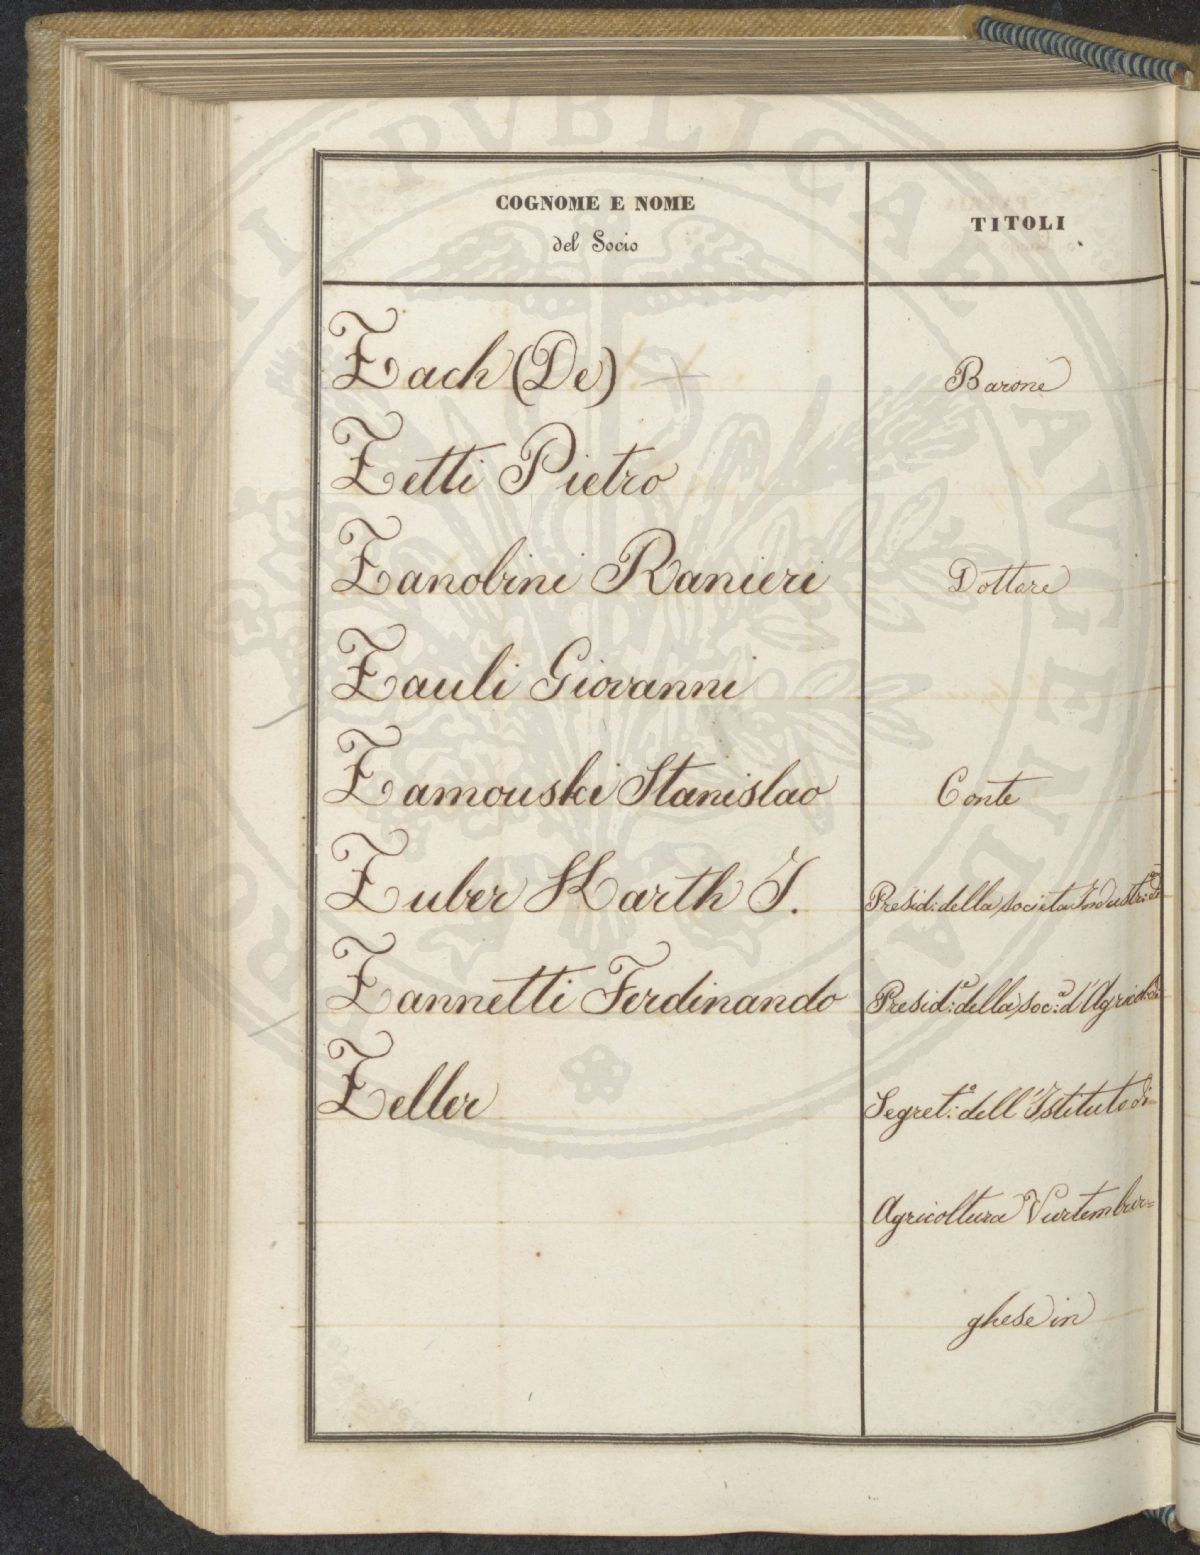 COGNOME E NOME
del Socio
TITOLI
Zach (De) Barone
Zetti Pietro
Zanobini Ranieri Dottore
Zauli Giovanni
Zamouski Stanislao Conte
Zuber Karth J. Presid: della societa Industri:
Zannetti Ferdinando Presid:e della soc:a d'Agricol:
Zeller Segret:o dell'Istituto di
Agricoltura Vurtembur=
ghese in